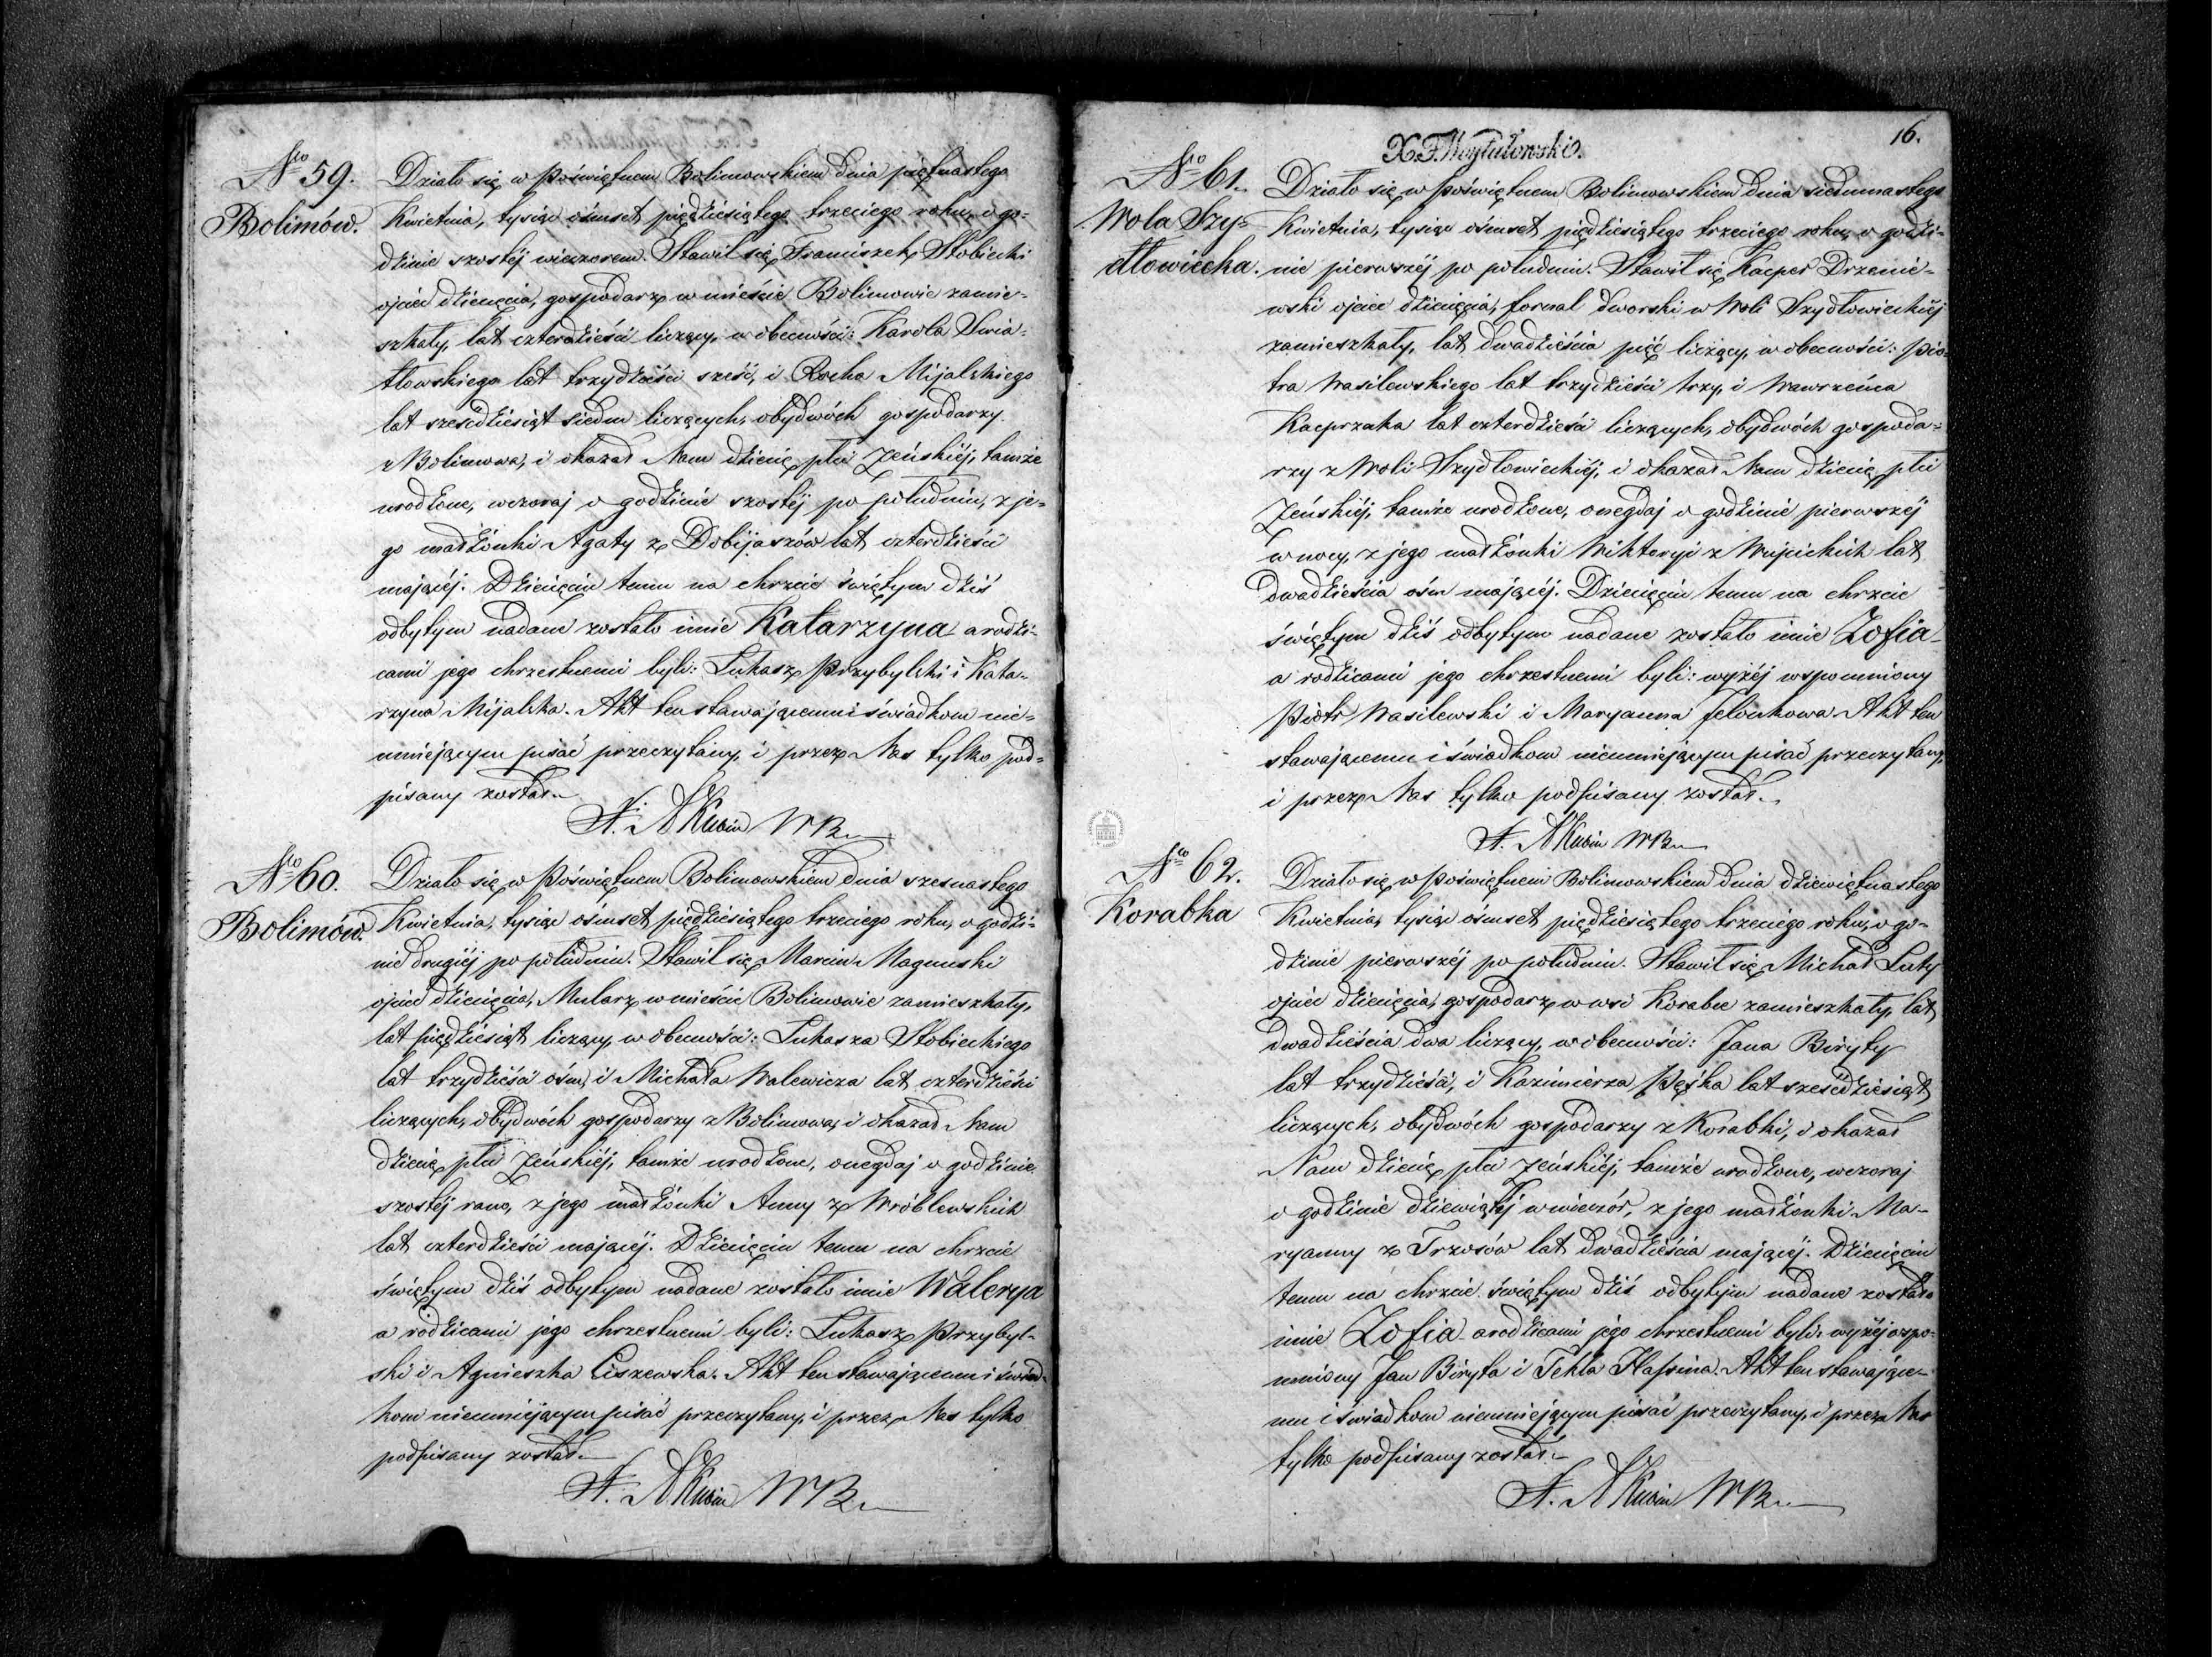 No 59.
Bolimów.
Działo się w Poświętnem Bolimowskiem dnia piętnastego
Kwietnia, tysiąc ośmset pięćdziesiątego trzeciego roku, o go=
dzinie szostéj wieczorem. Stawił się Franciszek Stobiecki
ojciec dziecięcia, gospodarz w mieście Bolimowie zamie=
szkały, lat czterdzieści liczący, w obecności: Karola Swia=
tłowskiego lat trzydzieści sześć, i Rocha Mijalskiego
lat sześćdziesiąt siedm liczących, obydwóch gospodarzy
z Bolimowa, i okazał Nam dziecię płci Żeńskiéj, tamże
urodzone, wczoraj o godzinie szostéj po południu, z je=
go małżonki Agaty z Dobijaszów lat czterdzieści
mającéj. Dziecięciu temu na chrzcie świętym dziś
odbytym nadane zostało imie Katarzyna a rodzi=
cami jego chrzestnemi byli: Łukasz Przybylski i Kata=
rzyna Mijalska. Akt ten stawającemu i świadkom nie=
umiejącym pisać przeczytany, i przez Nas tylko pod=
pisany został.
No 60.
Bolimów.
Działo się w Poświętnem Bolimowskiem dnia szesnastego
Kwietnia, tysiąc ośmset pięćdziesiątego trzeciego roku, o godzi=
nie drugiéj po południu. Stawił się Marcin Magnuski
ojciec dziecięcia, Mularz w mieście Bolimowie zamieszkały,
lat pięćdziesiąt liczący, w obecności: Łukasza Stobieckiego
lat trzydzieści ośm, i Michała Walewicza lat czterdzieści
liczących, obydwóch gospodarzy z Bolimowa, i okazał Nam
dziecię płci Żeńskiéj, tamże urodzone, onegdaj o godzinie
szostéj rano, z jego małżonki Anny z Wróblewskich
lat czterdzieści mającéj. Dziecięciu temu na chrzcie
świętym dziś odbytym nadane zostało imie Walerya
a rodzicami jego chrzestnemi byli: Łukasz Przybyl=
ski i Agnieszka Ciszewska. Akt ten stawającemu i świad=
kom nieumiejącym pisać przeczytany, i przez Nas tylko
podpisany został.
16.
No 61.
Wola Szy=
dłowiecka.
Działo się w Poświętnem Bolimowskiem dnia siedmnastego
Kwietnia, tysiąc ośmset pięćdziesiątego trzeciego roku, o godzi=
nie pierwszéj po południu. Stawił się Kacper Drzenie=
wski ojciec dziecięcia, fornal dworski w Woli Szydłowieckiéj
zamieszkały, lat dwadzieścia pięć liczący, w obecności: Pio=
tra Wasilewskiego lat trzydzieści trzy, i Wawrzeńca
Kacprzaka lat czterdzieści liczących, obydwóch gospoda=
rzy z Woli Szydłowieckiéj, i okazał Nam dziecię płci
Żeńskiéj, tamże urodzone, onegdaj o godzinie pierwszéj
w nocy, z jego małżonki Wiktoryi z Wujcickich lat
dwadzieścia ośm mającéj. Dziecięciu temu na chrzcie
świętym dziś odbytym nadane zostało imie Zofia
a rodzicami jego chrzestnemi byli: wyżéj wspomniony
Piotr Wasilewski i Maryanna Jelonkowa. Akt ten
stawającemu i świadkom nieumiejącym pisać przeczytany,
i przez Nas tylko podpisany został.
No 62.
Korabka
Działo się w Poświętnem Bolimowskiem dnia dziewiętnastego
Kwietnia, tysiąc ośmset pięćdziesiątego trzeciego roku, o go=
dzinie pierwszéj po południu. Stawił się Michał Luty
ojciec dziecięcia, gospodarz w wsi Korabce zamieszkały, lat
dwadzieścia dwa liczący, w obecności: Jana Biryty
lat trzydzieści, i Kazimierza Pęśka lat sześćdziesiąt,
liczących, obydwóch gospodarzy z Korabki, i okazał
Nam dziecię płci Żeńskiéj, tamże urodzone, wczoraj
o godzinie dziewiątéj w wieczór, z jego małżonki Ma=
ryanny z Trzosów lat dwadzieścia mającéj. Dziecięciu
temu na chrzcie świętym dziś odbytym nadane zostało
imie Zofia a rodzicami jego chrzestnemi byli: wyżéj wspo=
mniony Jan Biryta i Tekla. Akt ten stawające=
mu i świadkom nieumiejącym pisać przeczytany, i przez Nas
tylko podpisany został.